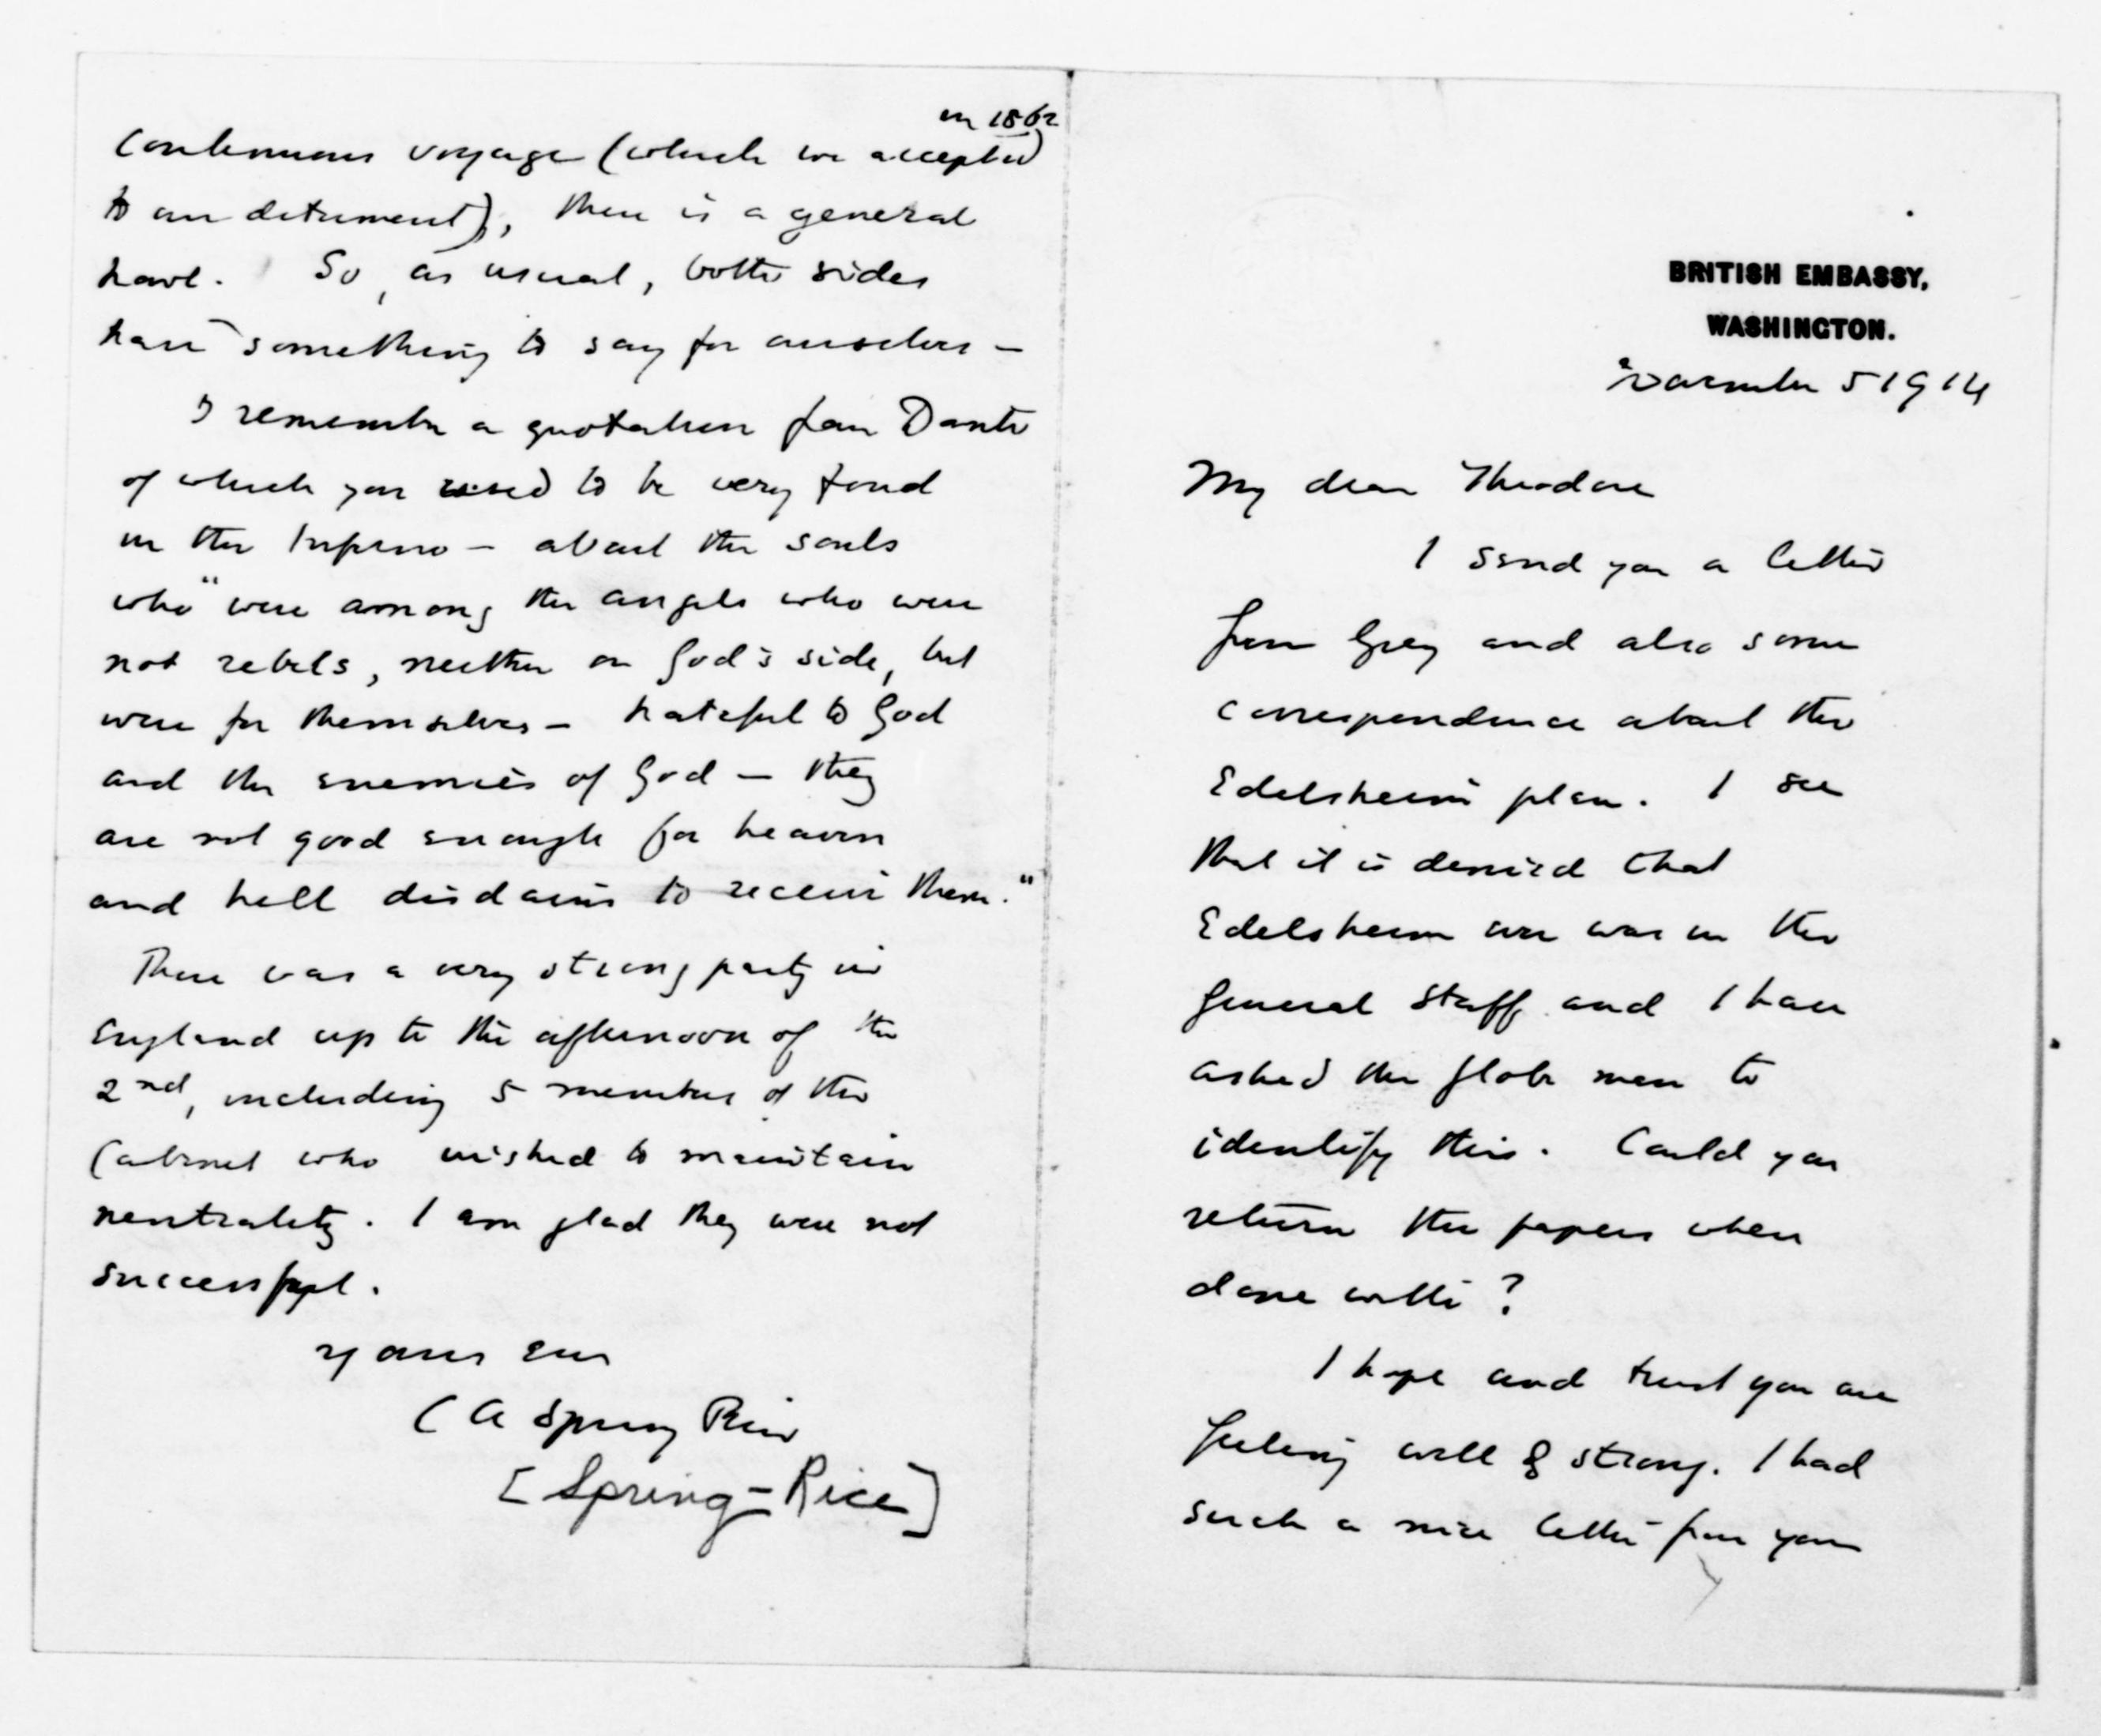 BRITISH EMBASSY,
WASHINGTON.
November 5 1914
My dear Theodore
I send you a letter
from Grey and also some
correspondence about the
Edelsheim plan. I see
that it is denied that
Edelsheim ever was in the
General Staff and I have
asked the Globe men to
identify this. Could you
return the papers when
done with?
I hope and trust you are
feeling well & strong. I had
such a nice letter from you
in 1862
continuous voyage (which we accepted)
to our detriment), there is a general
howl. So, as usual, both sides
have something to say for ourselves —
I remember a quotation from Dante
of which you used to be very fond
in the Inferno — about the souls
who "were among the angels who were
not rebels, neither on God's side, but
were for themselves — hateful to God
and the enemies of God — they
are not good enough for heaven
and hell disdains to receive them."
There was a very strong party in
England up to the afternoon of the
2nd, including 5 members of the
Cabinet who wished to maintain
neutrality. I am glad they were not
successful.
yours ever
C A Spring Rice
[Spring-Rice]